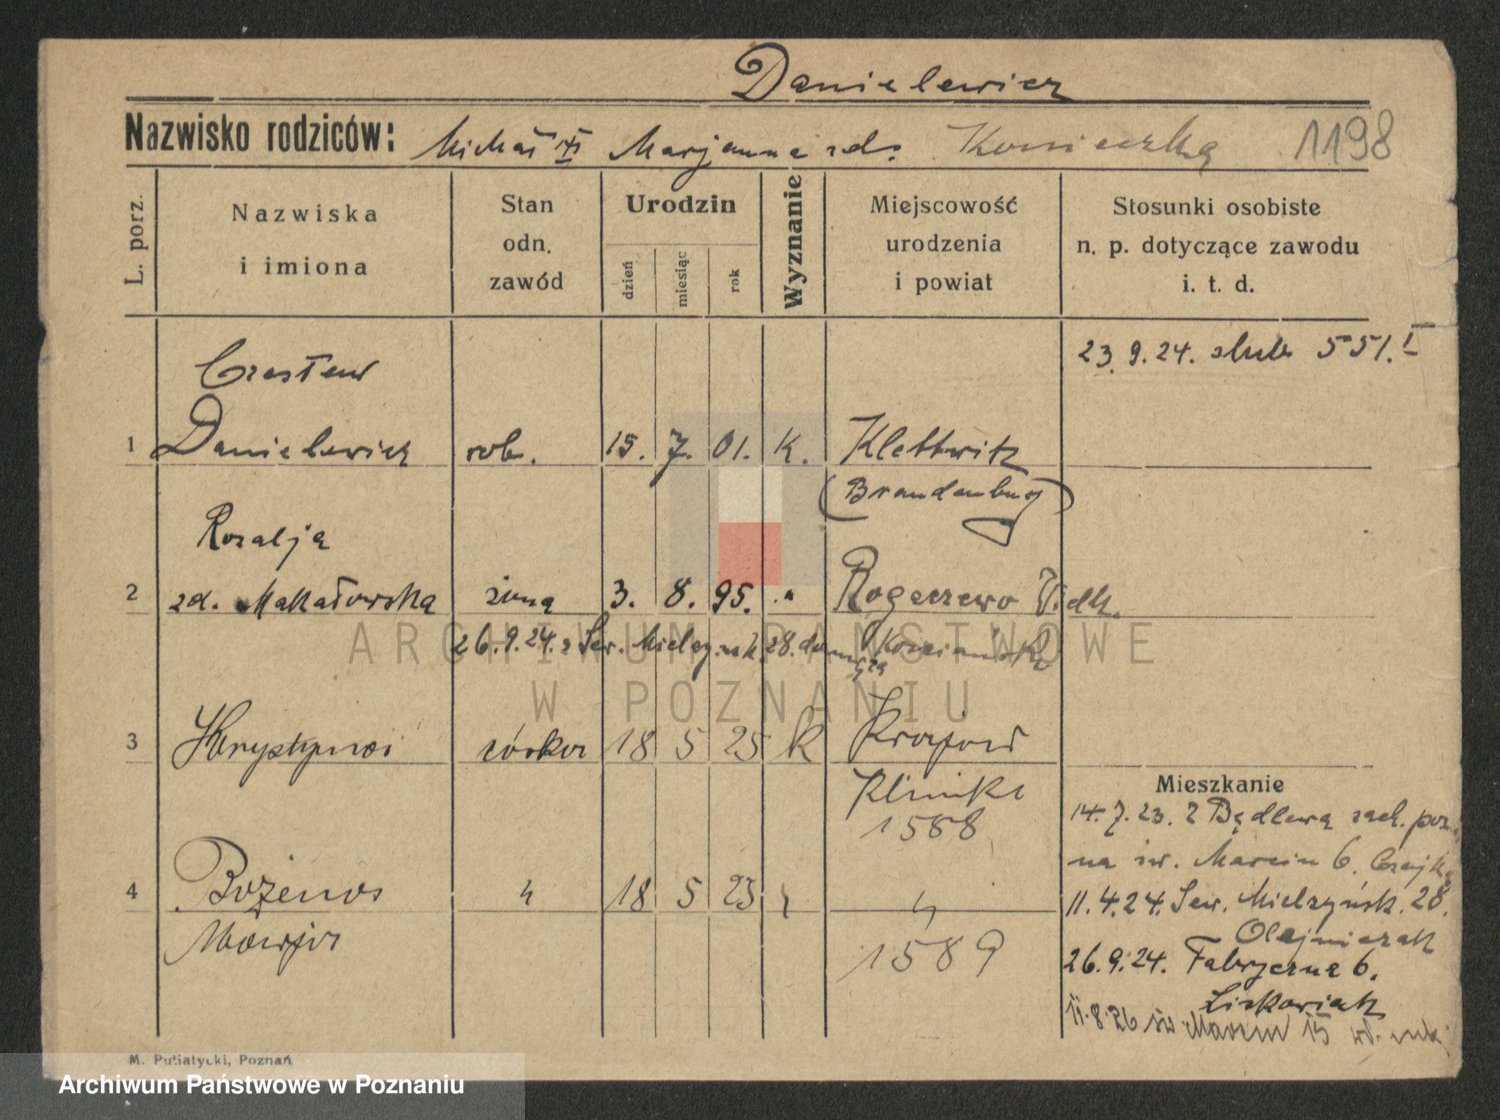 Danielewicz
Nazwisko rodziców: Michał Marjanna zd. Konieczka 1198
L. porz.
Nazwiska
i imiona
Stan
odn.
zawód
Urodzin
dzień
miesiąc
rok
Wyznanie
Miejscowość
urodzenia
i powiat
Stosunki osobiste
n. p. dotyczące zawodu
i. t. d.
23.9.24. ślub 551.I
Czesław
1 Danielewicz rob. 15. 7. 01. K. Klettwitz
(Brandenburg)
Rozalja
2 zd. Makałowska żona 3. 8. 95. " Rogaczewo Wlk.
26.9.24. z Sew. Mielżyńsk. 28. do męża
3 Krystyna córka 18 5 25 k Poznań
Klinika
1588
4 Bożena 18 5 25
Marja
1589
Mieszkanie
14.7.23. z Będlewa
na św. Marcin 6.
11.4.24. Sew. Mielżyńsk. 28.
Olejniczak
26.9.24. Fabryczna 6.
Liskowiak
11.8.26 św. Marcin 15
M. Putiatycki, Poznań
ARCHIWUM PAŃSTWOWE
W POZNANIU
Archiwum Państwowe w Poznaniu